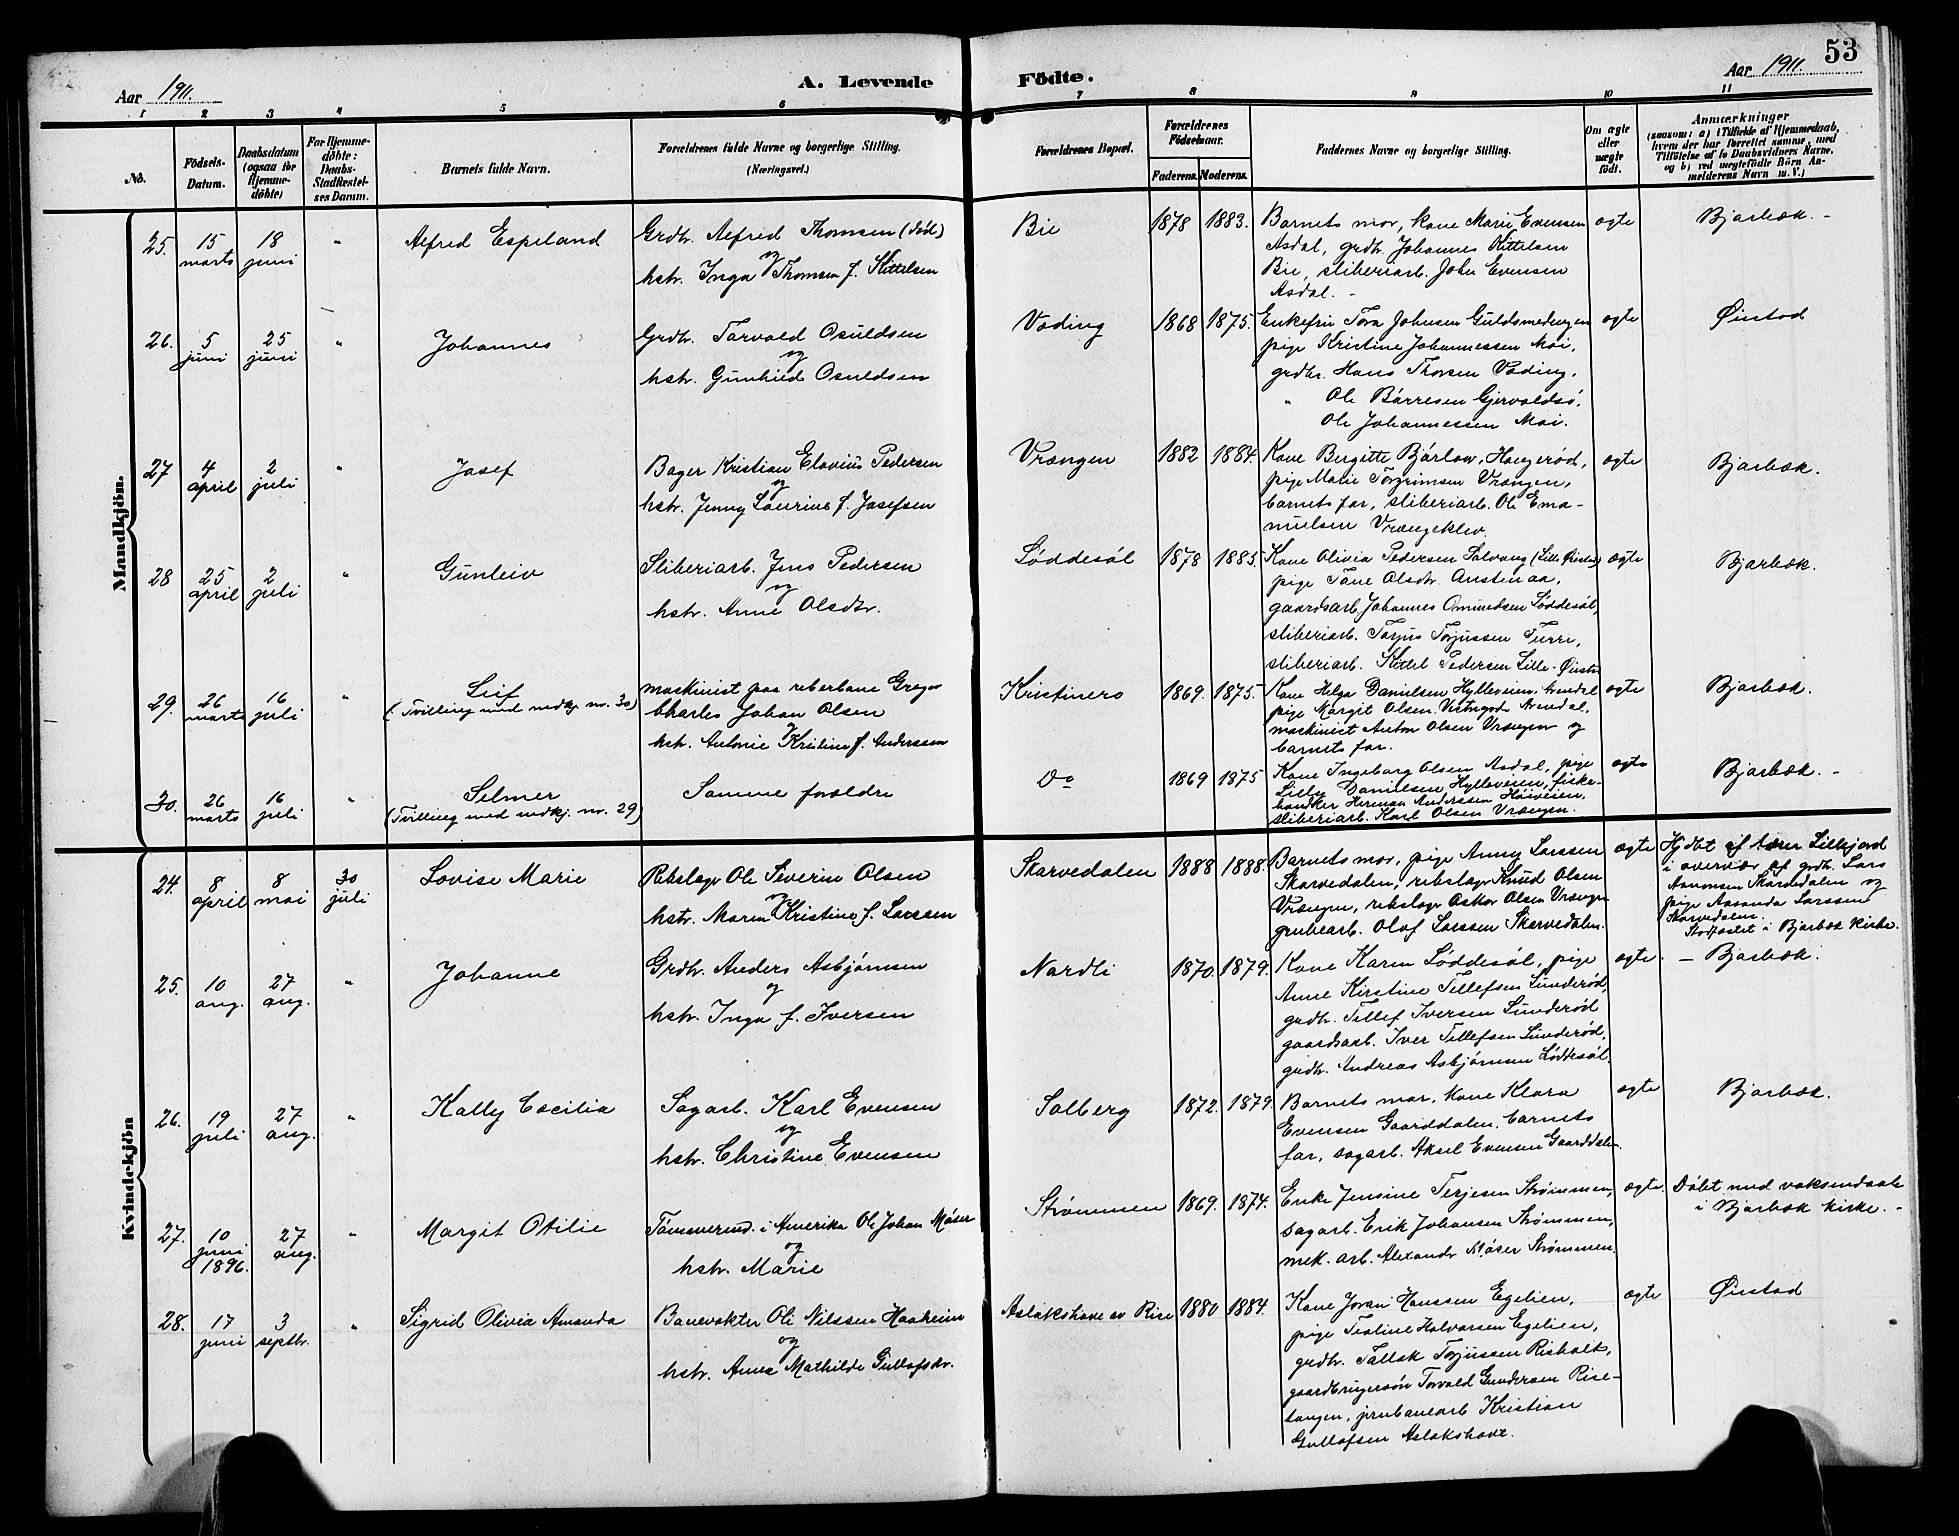 53
Aar 1911.
A. Levende
Födte.
Aar 1911.
1 2 3 4 5 6 7 8 9 10 11
No.
Födsels-
Datum.
Daabsdatum
(ogsaa for
Hjemme-
döbte)
For Hjemme-
döbte:
Daabs-
Stadfæstel-
ses Datum.
Barnets fulde Navn.
Forældrenes fulde Navne og borgerlige Stilling.
(Næringsvei.)
Forældrenes Bopæl.
Forældrenes
Födselsaar.
Faderens. Moderens.
Faddernes Navne og borgerlige Stilling.
Om ægte
eller
uægte
födt.
Anmærkninger
(saasom: a) i Tilfælde af Hjemmedaab,
hvem der har forrettet samme, med
Tilföielse af to Daabsvidners Navne,
og b) ved uægtefödte Börn An-
melderens Navn m. V.)
Mandkjön.
25. 15 marts 18 juni " Alfred Espeland
Grdbr. Alfred Thomsen (död)
og
hstr. Inga Thomsen f. Kittelsen
Bie 1878 1883.
Barnets mor, kone Marie Evensen
Asdal, grdbr. Johannes Kittelsen
Bie, sliberiarb. John Evensen
Asdal. -
ægte Bjorbæk. -
26. 5 juni 25 juni " Johannes
Grdbr. Torvald Osuldsen
og
hstr. Gunhild Osuldsen
Væding 1868 1875.
Enkefru Tora Johnsen Guldsmedengen
pige Kristine Johannessen Moi,
grdbr. Hans Thorsen Væding,
" Ole Børresen Gjervoldsø,
Ole Johannessen Moi.
ægte Øiestad
27 4 april 2 juli " Josef
Bager Kristian Elovius Pedersen
og
hstr. Jenny Laurine f. Josefsen
Vrængen 1882 1884.
Kone Birgitte Bjørlow,
pige Marie Torgrimsen Vrængen,
barnets far, sliberiarb. Ole Ema-
nuelsen Vrængeklev.
ægte Bjorbæk.
28 25 april 2 juli " Gunleiv
Sliberiarb. Jens Pedersen
og
hstr. Anne Olsdtr.
Løddesøl 1878 1885.
Kone Olivia Pedersen Solvang (Lille Øiestad)
pige Tone Olsdtr. Austenaa,
gaardsarb. Johannes Omundsen Løddesøl,
sliberiarb. Torjus Torjussen Furre,
sliberiarb. Kittel Pedersen Lille-Øiestd
ægte Bjorbæk.
29. 26 marts 16 juli " Leif
(Tvilling med mdkj. no. 30)
maskinist paa reberbane Greger
Charles Johan Olsen
og
hstr. Antonie Kristine f. Anderssen
Kristinero 1869. 1875.
Kone Helga Danielsen Hylleveien, Arendal
pige Margit Olsen Vestregade Arendal,
maskinist Anton Olsen Vrængen og
barnets far.
ægte Bjorbæk.
30. 26 marts 16 juli " Selmer
(Tvilling med mdkj. no. 29)
Samme forældre
Do 1869 1875
Kone Ingeborg Olsen Asdal, pige
Lilly Danielsen Hylleveien, fiske-
handler Herman Anderssen Høiveien,
sliberiarb. Karl Olsen Vrængen.
ægte Bjorbæk. -
Kvindekjön
24. 8 april 8 mai 30 juli Lovise Marie
Rebslager Ole Severin Olsen
og
hstr. Maren Kristine f. Larssen
Skarvedalen 1888 1888.
Barnets mor, pige Anny Larssen
Skarvedalen, rebslager Knud Olsen
Vrængen, rebslager Oskar Olsen Vrængen
grubearb. Olaf Larssen Skarvedalen.
ægte
Hjdbt af lærer Lillejord
i overvær af grdbr. Lars
Aanonsen Skarvedalen og
pige Aasanda Larssen
Skarvedalen.
Stadfæstet i Bjorbæk kirke.
25. 10 aug. 27 aug. " Johanne
Grdbr. Anders Asbjørnsen
og
hstr. Inga f. Iversen
Nordli 1870. 1879.
Kone Karen Løddesøl, pige
Anne Kirstine Tellefsen Lunderød,
grdbr. Tellef Iversen Lunderød
gaardsarb. Iver Tellefsen Lunderød,
grdbr. Andreas Asbjørnsen Løddesøl.
ægte. - Bjorbæk.
26. 19 juli 27 aug. " Kally Cecilia
Sagarb. Karl Evensen
og
hstr. Christine Evensen
Solberg 1872. 1879.
Barnets mor, kone Klara
Evensen Gaarddalen, barnets
far, sagarb. Aksel Evensen Gaarddalen.
ægte Bjorbæk.
27. 10 juni 1896. 27 aug. " Margit Otilie
Tømmermd. i Amerika Ole Johan Møser
og
hstr. Marie
Strømmen 1869. 1874.
Enke Jensine Terjesen Strømmen,
sagarb. Erik Johansen Strømmen,
mek. arb. Alexander Møser Strømmen.
ægte.
Døbt med voksendaab
i Bjorbæk kirke. -
28. 17 juni 3 septbr. " Sigrid Olivia Amanda
Banevokter Ole Nilssen Haaheim
og
hstr. Anna Mathilde Gullofsdtr.
Aslakshave av Rise 1880 1884.
Kone Joran Hanssen Egelien,
pige Teoline Halvorsen Egelien,
grdbr. Tallak Torjussen Risholt,
gaardbrugersøn Torvald Gundersen Rise-
tangen, jernbanearb Kristian
Gullofsen Aslakshave.
ægte Øiestad